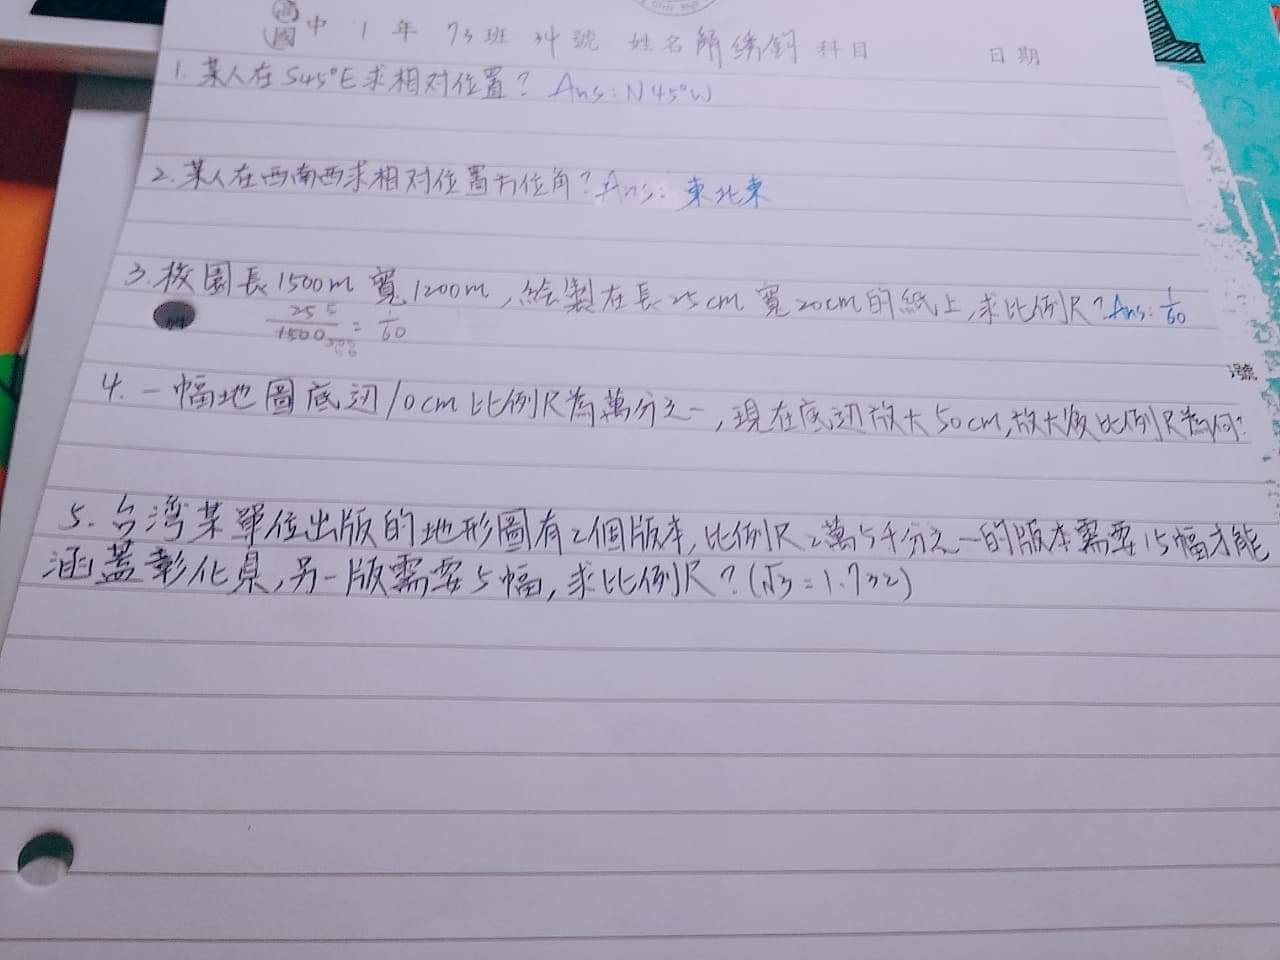 高
國 中 1 年 73 班 34 號 姓名 科目 日期
1. 某人在S45°E求相对位置? Ans: N45°W
2. 某人在西南西求相对位置方位角? Ans: 東北東
3. 校園長1500m 寬1200m, 繪製在長25cm 寬20cm的紙上, 求比例尺? Ans: 1/60
25/1500 = 1/60
4. 一幅地圖底边10cm 比例尺為萬分之一, 現在底边放大50cm, 放大後比例尺為何?
號
5. 台灣某單位出版的地形圖有2個版本, 比例尺2萬5千分之一的版本需要15幅才能
涵蓋彰化縣, 另一版需要5幅, 求比例尺? (√3 = 1.732)